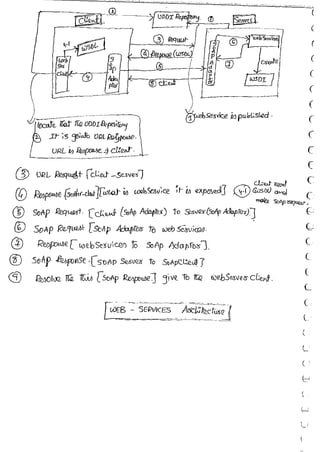 ②
UDDI Repository
①
Client
Server
③ Request
④ Response (WSDL)
⑤
⑧ Client
4.1
WSDL
Web
Client
⑨
Adap
ptor
⑥
⑦
Web Services
WSDL
① webService is published.
locate that the UDDI Repository
② It is gives URL Response.
URL is Response of client.
③ URL Request [client - server]
④ Response [server-client] [what is webService it is exposed]
4.1 Client Read
WSDL and
make SOAP request.
⑤ SOAP Request. [client (SOAP Adaptor) to Server (SOAP Adaptor)]
⑥ SOAP Request [SOAP Adaptor to web services.
⑦ Response [webServices to SOAP Adaptor].
⑧ SOAP Response. [SOAP Server to SOAP client]
⑨ Resolve the this [SOAP Response] give to the webServer client.
WEB - SERVICES Architecture